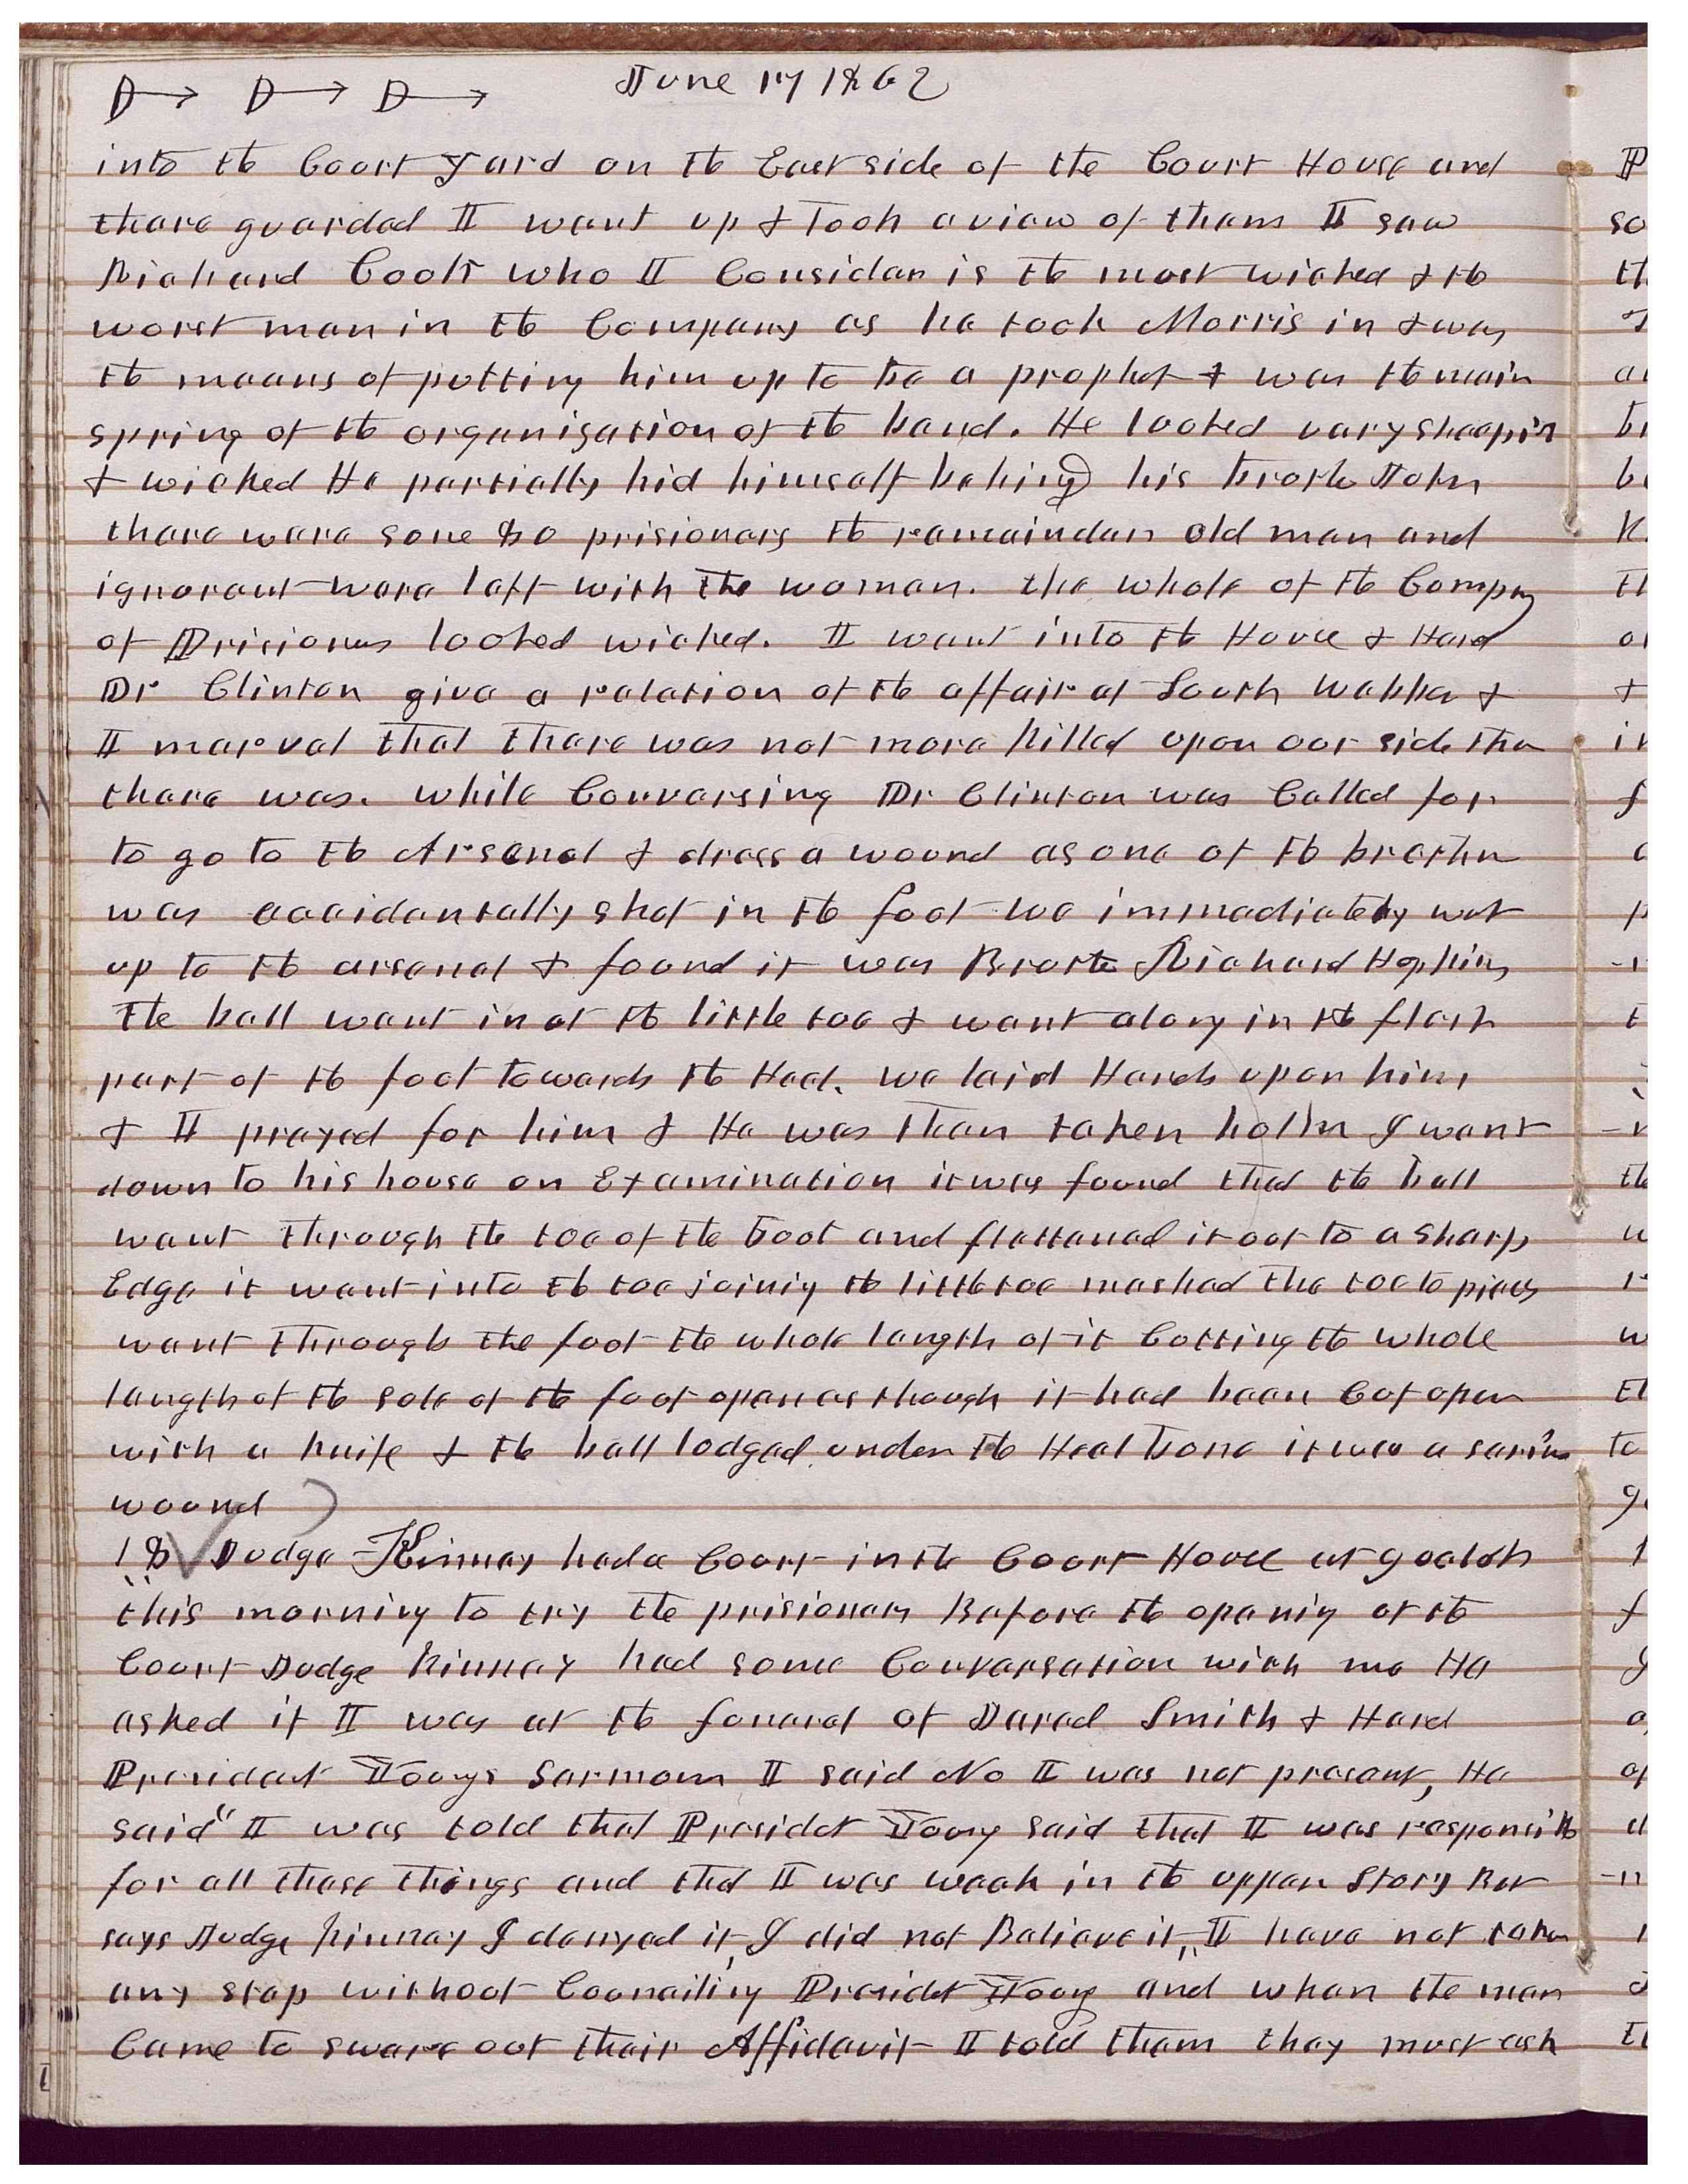 June 17 1862
into the Court Yard on the East side of the Court House and
there guarded I went up & Took a view of them I saw
Richard Cook who I Consider is the most wicked & the
worst man in the Company as he took Morris in & was
the means of putting him up to be a prophet & was the main
spring of the organisation of the band. He looked very sheepish
& wicked He partially hid himself behind his brothe John
there were some 80 prisioners the remainder old men and
ignorant were left with the women. the whole of the Compny
of Prisioners looked wicked. I went into the House & Hard
Dr Clinton give a relation of the affair at South Webber &
I marvel that there was not more killed upon our side than
there was. While Conversing Dr Clinton was Called for
to go to the Arsenal & dress a wound as one of the brethn
was accidentally shot in the foot we immediately wet
up to the arsenal & found it was Brothe Richard Hopkins
The ball went in at the little toe & went along in the flesh
part of the foot towards the Heel. we laid Hands upon him
& I prayed for him & He was then taken home I went
down to his house on Examination it was found that the ball
went through the toe of the boot and flattened it out to a sharp
Edge it went into the toe joinig the little toe mashed the toe to pieces
went through the foot the whole length of it Cutting the whole
length of the sole of the foot open as though it had been Cut open
with a knife & the ball lodged under the Heel bone it was a serius
wound
18 Judge Kinney had a Court in the Court House at 9 oclok
this morning to try the prisioners Before the openig of the
Court Judge Kinney had some Conversation with me He
asked if I was at the funeral of Jared Smith & Hard
President Youngs Sermon I said No I was not present, He
said" I was told that Presidet Young said that I was responsible
for all these things and that I was weak in the upper Story But
says Judge Kinney I denyed it, I did not Believe it, I have not taken
any step without Counciling Presidet Young and when the men
Came to sware out their Affidavit I told them they must ask